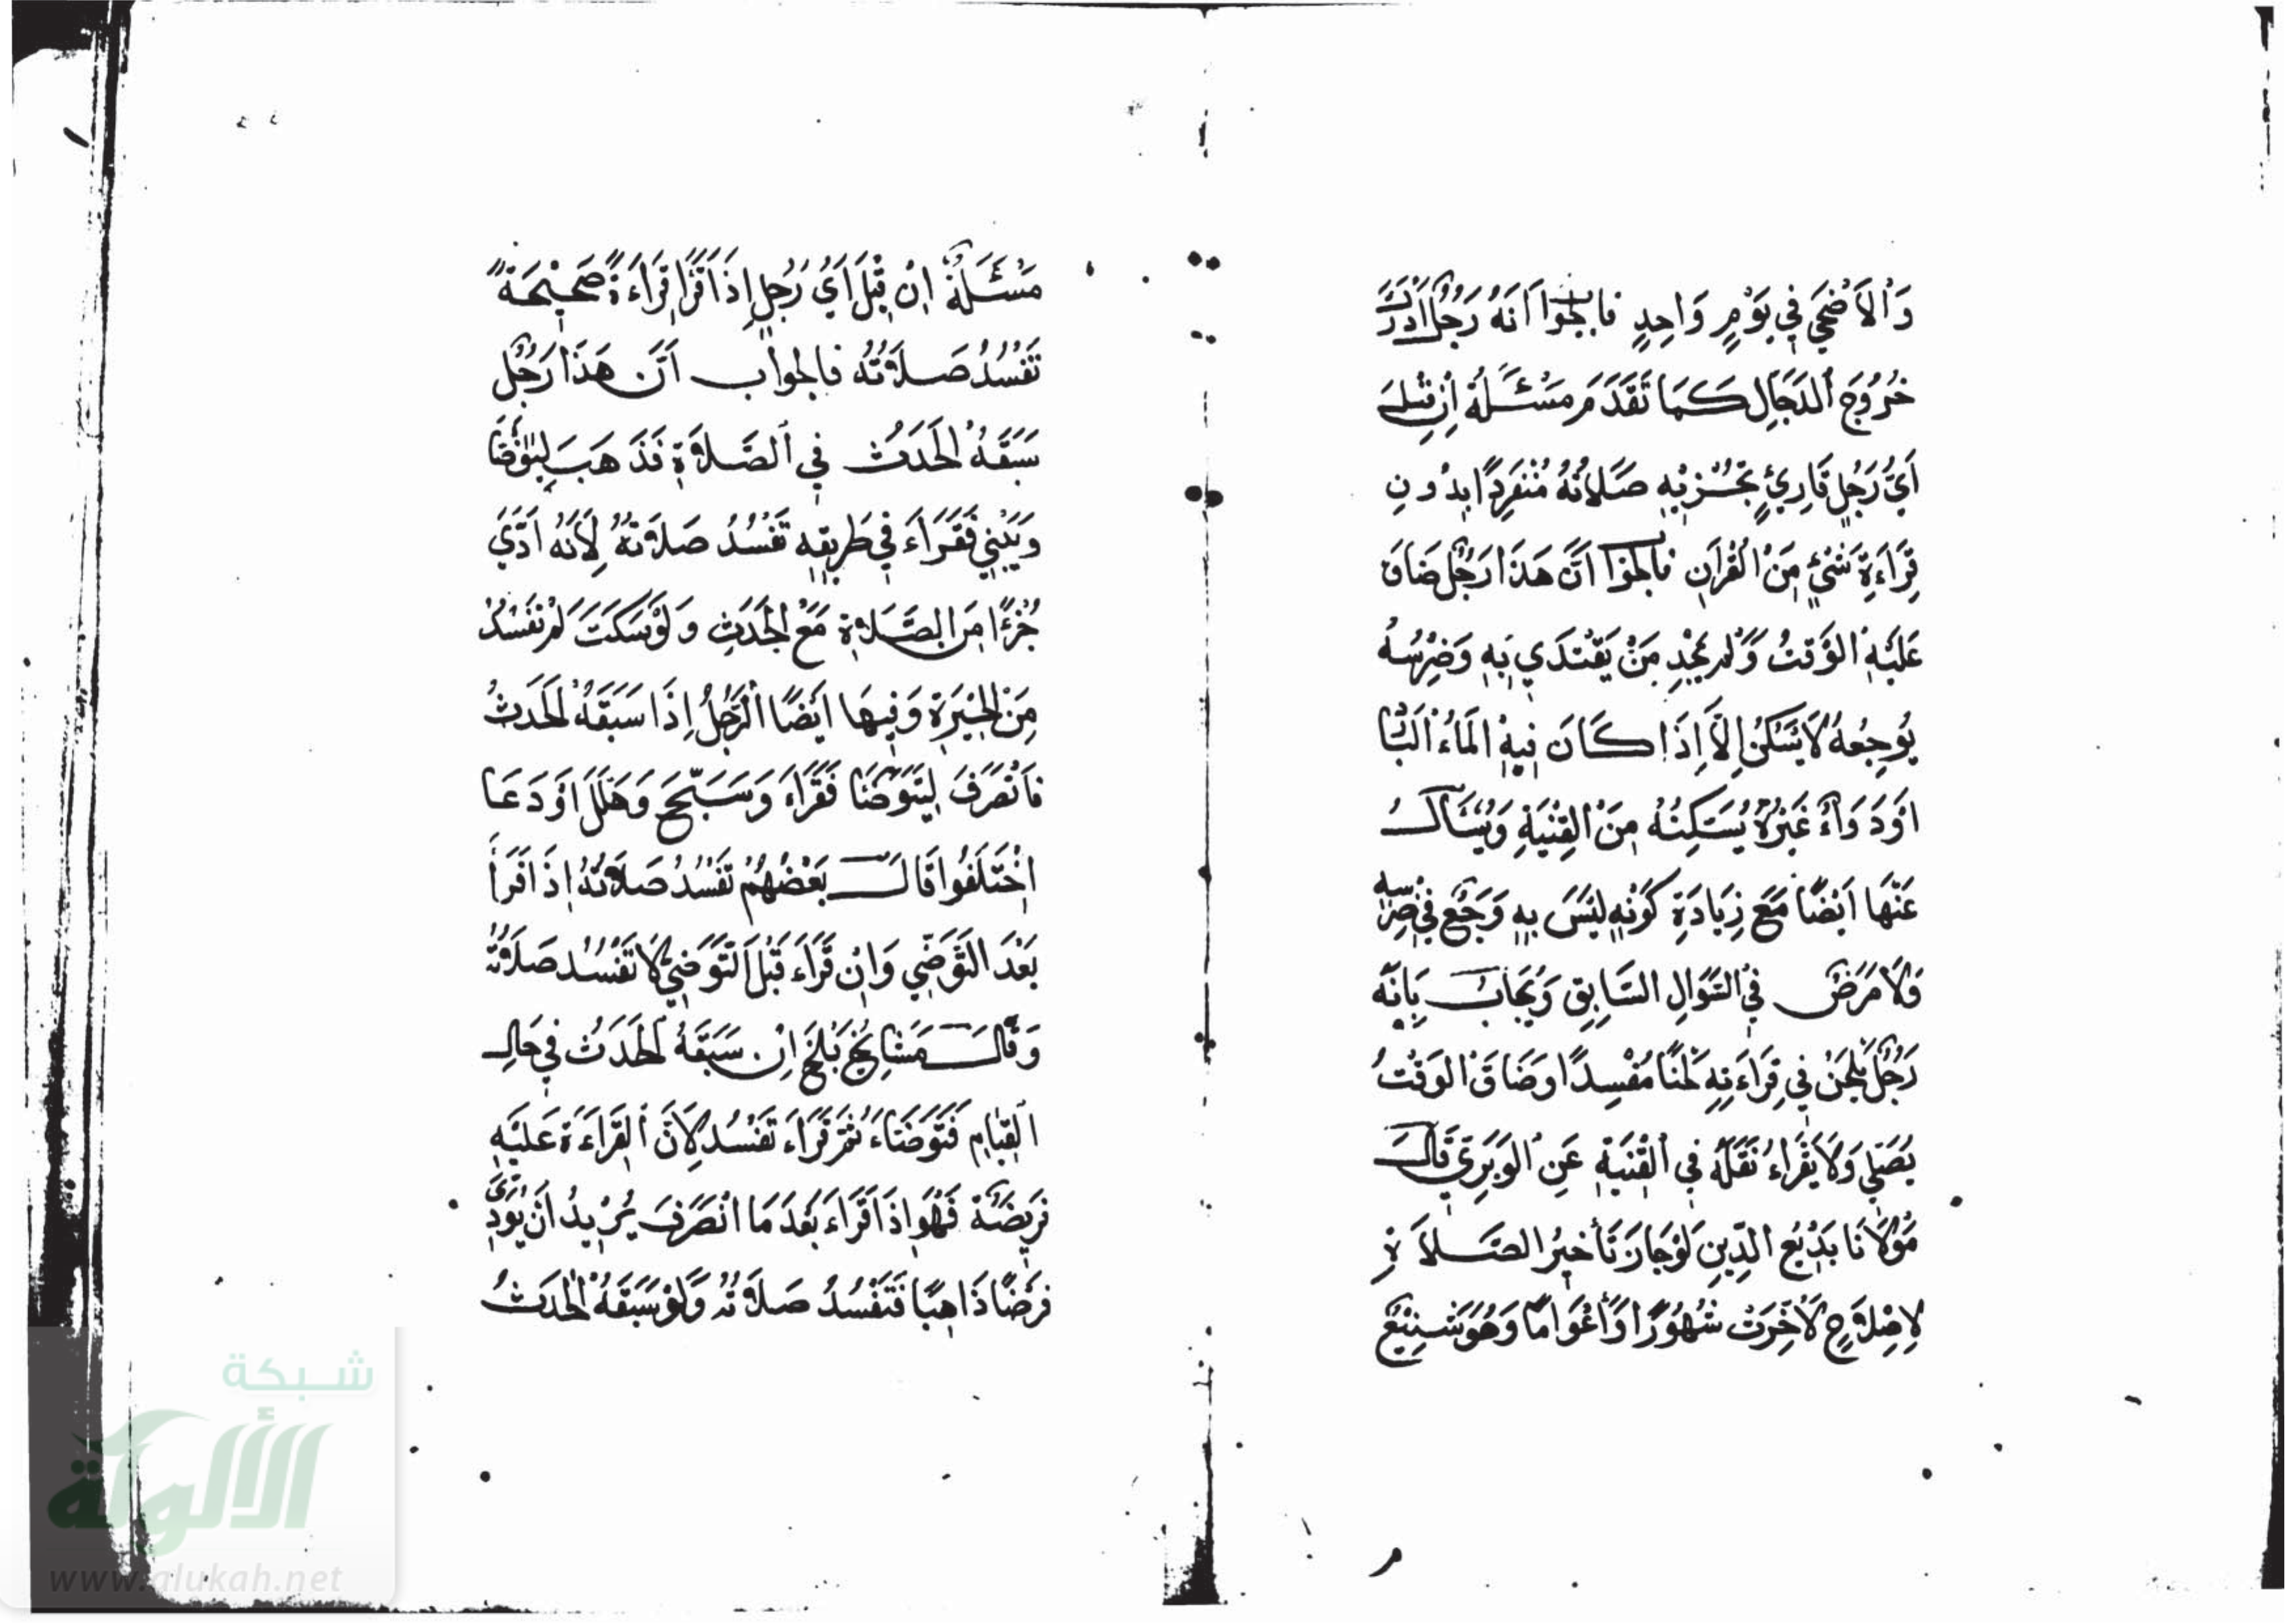 وَالْأَضْحَى فِي يَوْمٍ وَاحِدٍ فالجوا أَنَهُ رَجُلٌ أَدْرَكَ
خُرُوجَ الدَجَالِ كَمَا تَقَدَمَ مَسْئَلَةٌ اِنْ قِيْلَ
أَيُّ رَجُلٍ قَارِئٍ تُجْزِيْهِ صَلَاتُهُ مُنْفَرِدًا بِدُونِ
قِرَاءَةِ شَئٍْ مِنَ الْقُرْآنِ فالجوا اَنَّ هَذَا رَجُلٌ ضَاقَ
عَلَيْهِ الْوَقْتُ وَلَمْ يَجِدْ مَنْ يَقْتَدِي بِهِ وَضِرْسُهُ
يُوجِعُهُ لَا يَسْكُنُ إِلَّا إِذَا كَانَ فِيْهِ الْمَاءُ الْبَتَّا
اَوْ دَوَاءٌ غَيْرُهُ يُسَكِنُهُ مِنَ الْقِنْيَةِ وَيُسْئَالُ
عَنْهَا اَيْضًا مَعَ زِيَادَةِ كَوْنِهِ لَيْسَ بِهِ وَجَعٌ فِي ضِرْسِهِ
وَلَا مَرَضٌ فِي السُّوَالِ السَّابِقِ وَيُجَابُ بِاَنَّهُ
رَجُلٌ يَلْحَنُ فِي قِرَاءَتِهِ لَحْنًا مُفْسِدًا وَضَاقَ الْوَقْتُ
يُصَلِّي وَلَا يَقْرَاءُ نَقَلَهُ فِي الْقِنْيَةِ عَنِ الْوَبَرِيِّ قَالَ
مَوْلَانَا بَدِيْعُ الدِّيْنِ لَوْ جَازَ تَأْخِيْرُ الصَّلَاةِ
لِاِصْلَاحٍ لَأُخِّرَتْ شُهُوْرًا وَأَعْوَامًا وَهُوَ شَنِيْعٌ
مَسْئَلَةٌ اِنْ قِيْلَ اَيُّ رَجُلٍ إِذَا قَرَأَ قِرَاءَةً صَحِيْحَةً
تَفْسُدُ صَلَاتُهُ فالجواب اَنَّ هَذَا رَجُلٌ
سَبَقَهُ الْحَدَثُ فِي الصَّلَاةِ فَذَهَبَ لِيَتَوَضَّأَ
وَيَبْنِي فَقَرَاءَ فِي طَرِيقِهِ تَفْسُدُ صَلَاتُهُ لِأَنَهُ اَدَّي
جُزْءًا مِنَ الصَّلَاةِ مَعَ الْحَدَثِ وَلَوْ سَكَتَ لَمْ تَفْسُدْ
مِنَ الْحِيْرَةِ وَفِيهَا اَيْضًا الرَّجُلُ إِذَا سَبَقَهُ الْحَدَثُ
فَانْصَرَفَ لِيَتَوَضَّأَ فَقَرَاءَ وَسَبَّحَ وَهَلَلَ اَوْ دَعَا
اخْتَلَفُوا قَالَ بَعْضُهُمْ تَفْسُدُ صَلَاتُهُ إِذَا قَرَأَ
بَعْدَ التَّوَضِّي وَاِنْ قَرَاءَ قَبْلَ التَّوَضِّي لَا تَفْسُدُ صَلَاتُهُ
وَقَالَ مَشَايِخُ بَلْخَ اِنْ سَبَقَهُ الْحَدَثُ فِي حَالِ
الْقِيَامِ فَتَوَضَاءَ ثُمَّ قَرَاءَ تَفْسُدُ لِأَنَّ الْقِرَاءَةَ عَلَيْهِ
فَرِيضَةٌ فَهُوَ إِذَا قَرَاءَ بَعْدَ مَا انْصَرَفَ يُرِيدُ اَنْ يُؤَدِّيَ
فَرْضًا ذَاهِبًا فَتَفْسُدُ صَلَاتُهُ وَلَوْ سَبَقَهُ الْحَدَثُ
شبكة
الألوكة
www.alukah.net